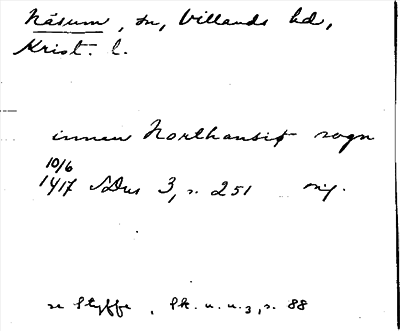 Näsum, sn, Villands hd,
Krist. l.
innen Northansiø sogn
10/6
1417 SDns 3, s. 251 orig.
se Styffe, Sk. u. u. 3, s. 88